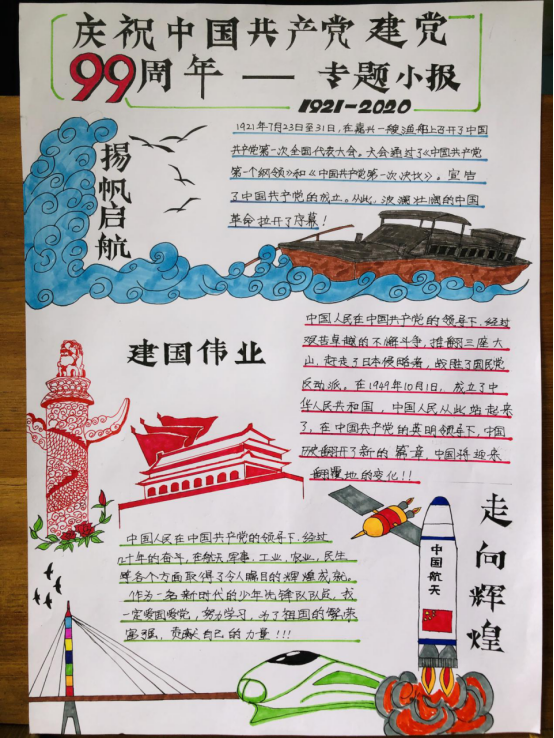 庆祝中国共产党建党
99周年 — 专题小报
1921-2020
1921年7月23日至31日,在嘉兴一艘游船上召开了中国
共产党第一次全国代表大会。大会通过了《中国共产党
第一个纲领》和《中国共产党第一次决议》。宣告
了中国共产党的成立。从此,波澜壮阔的中国
革命拉开了序幕!
扬帆启航
中国人民在中国共产党的领导下,经过
艰苦卓越的不懈斗争,推翻三座大
山,赶走了日本侵略者,战胜了国民党
反动派。在1949年10月1日,成立了中
华人民共和国,中国人民从此站起来
了,在中国共产党的英明领导下,中国
历史翻开了新的篇章,中国将迎来
翻覆地的变化!!
建国伟业
走向辉煌
中国航天
中国人民在中国共产党的领导下,经过
几十年的奋斗,在航天,军事,工业,农业,民生
等各个方面取得了令人瞩目的辉煌成就。
作为一名新时代的少年先锋队队员,我
一定爱国爱党,努力学习,为了祖国的繁荣
富强,贡献自己的力量!!!